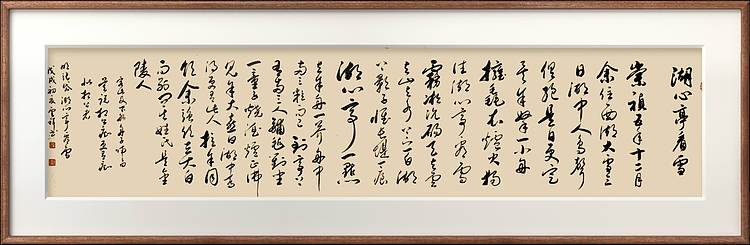 湖心亭看雪
崇禎五年十二月
余住西湖大雪三
日湖中人鳥聲
俱絕是日更定
矣余拏一小舟
擁毳衣爐火獨
往湖心亭看雪
霧凇沆碭天與雲
與山與水上下一白湖
上影子惟長堤一痕
湖心亭一點
與余舟一芥舟中
人兩三粒而已到亭上
有兩三人鋪氈對坐
一童子燒酒爐正沸
見余大喜曰湖中焉
得更有此人拉余同
飲余強飲三大白
而別問其姓氏是金
陵人
客此及下船舟子喃喃曰
莫說相公癡更有癡
似相公者
明張岱湖心亭看雪
戊戌初夏